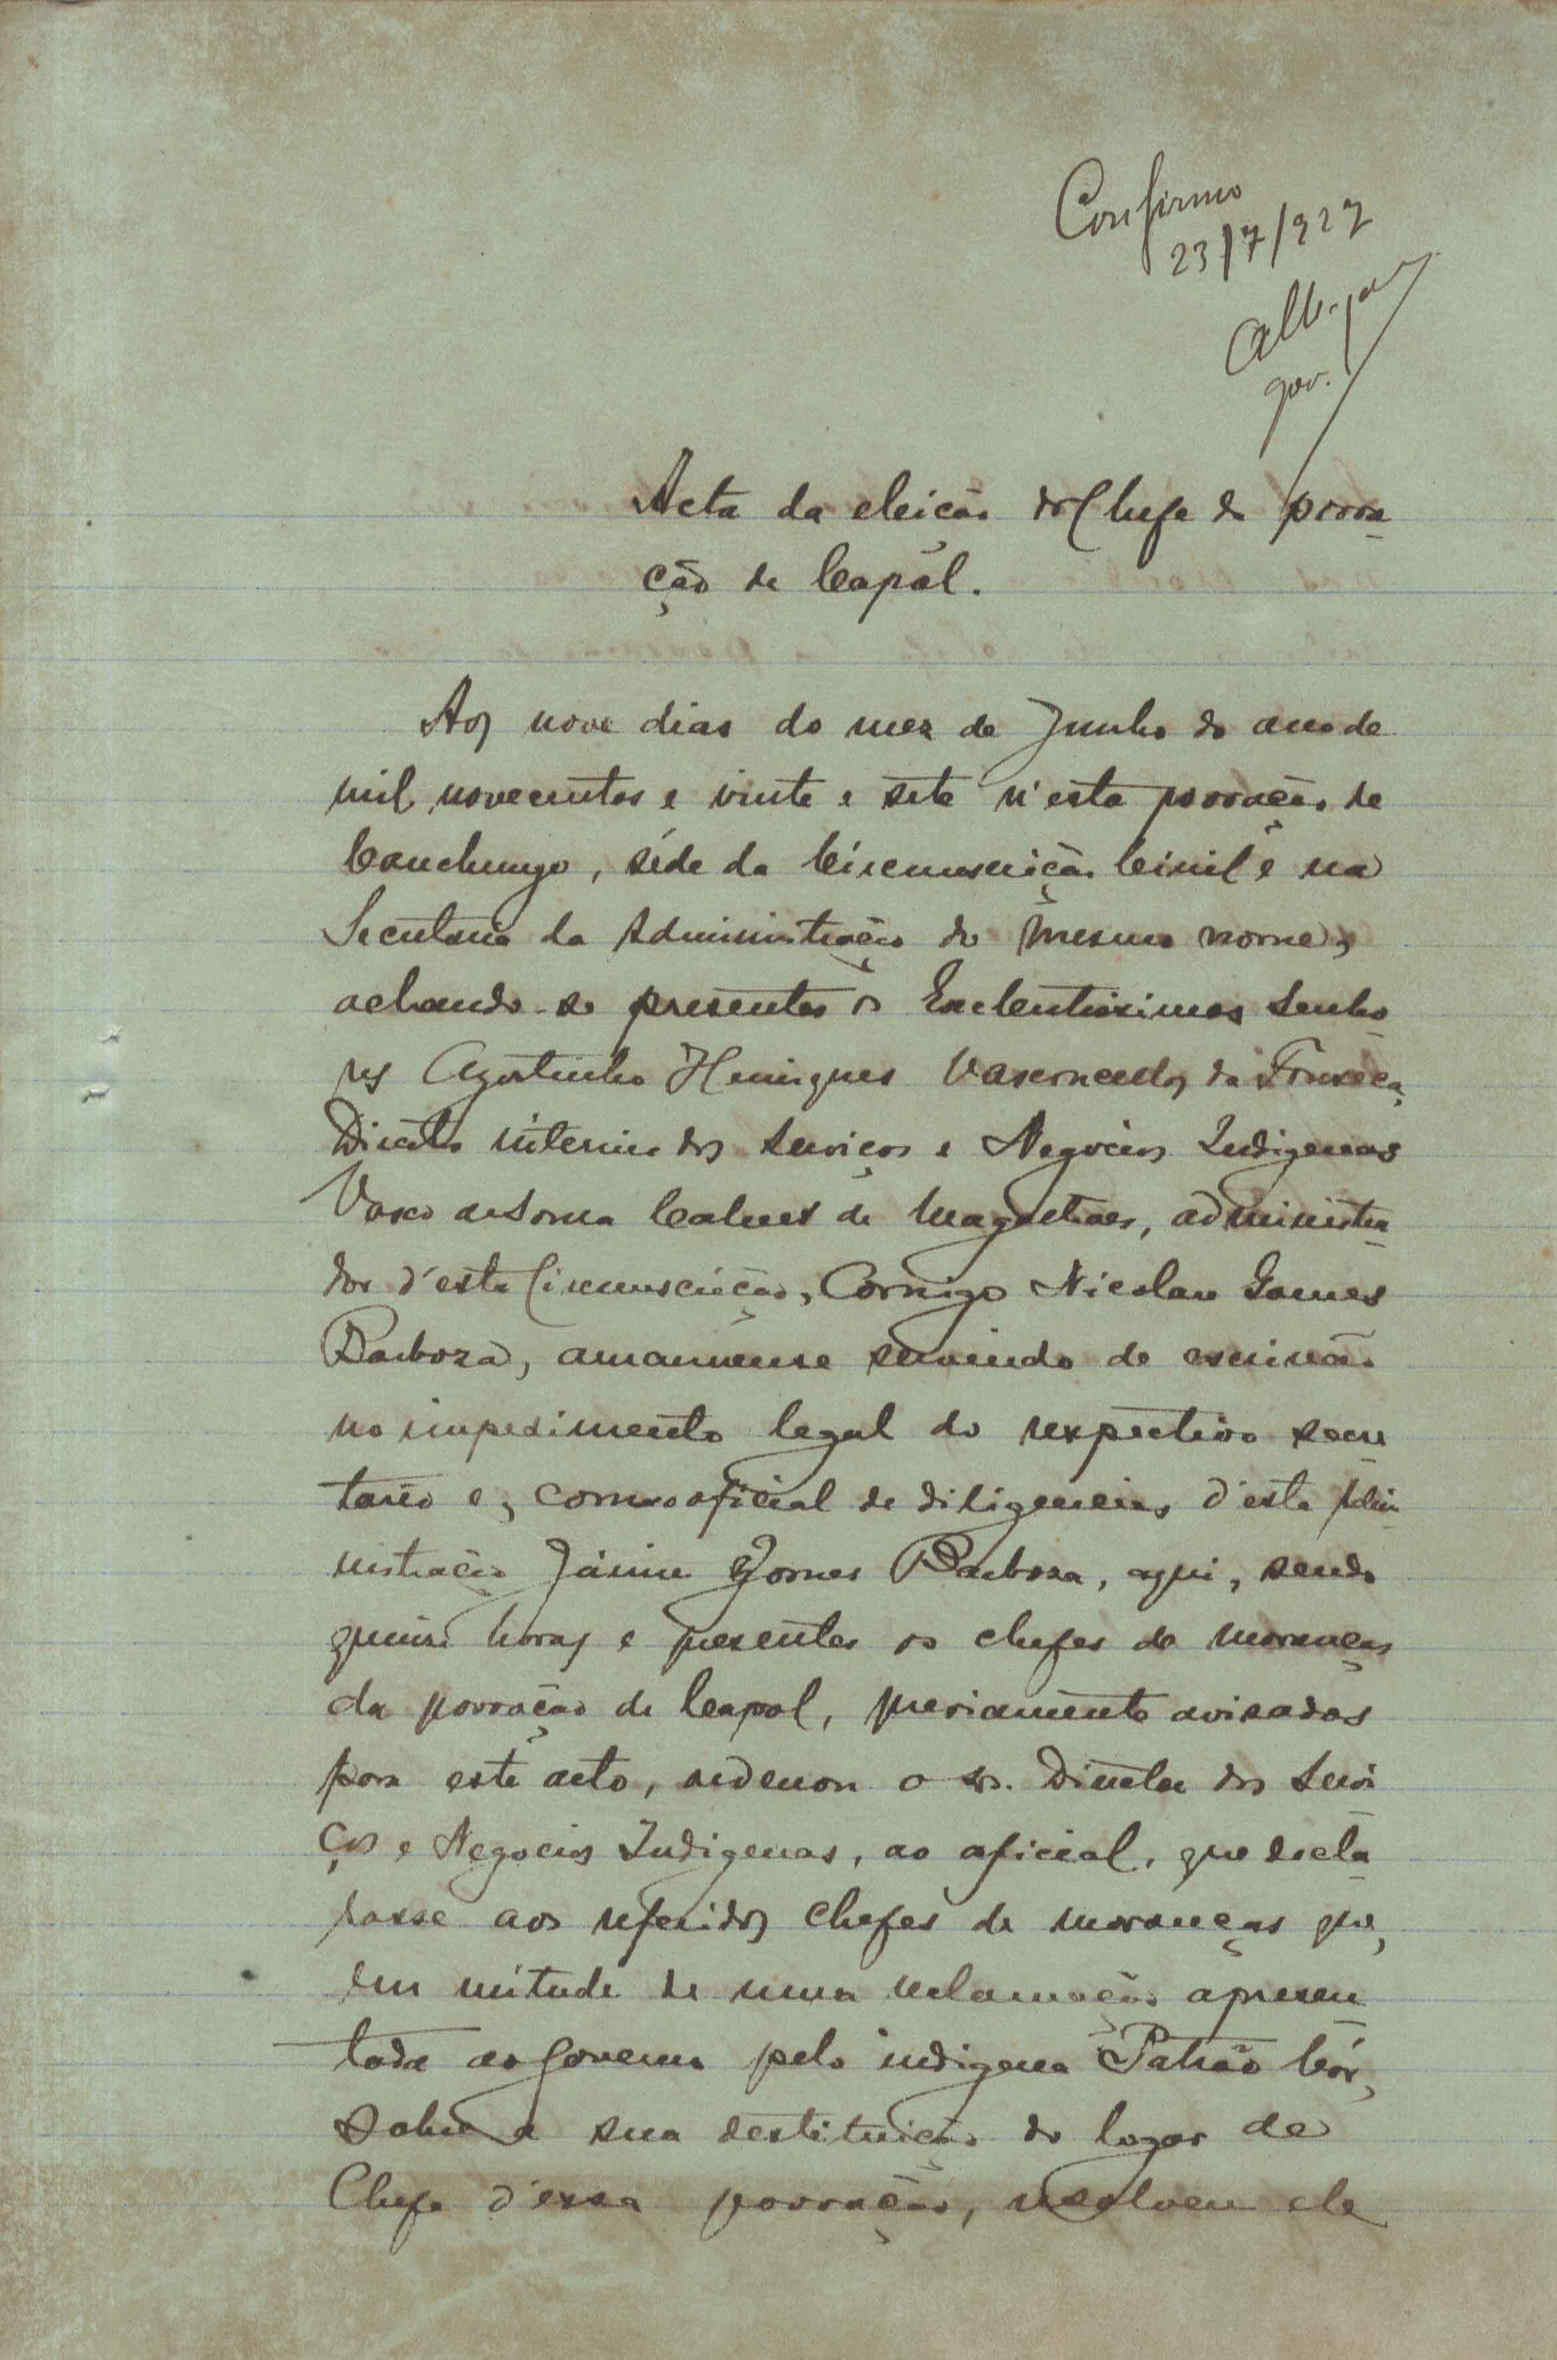 Confirmo
23/7/927
gov.
Acta da eleição do Chefe da povoa-
ção de Capól.
Aos nove dias do mez de Junho do ano de
mil novecentos e vinte e sete n'esta povoação de
Canchungo, séde da Circumscrição Civil e na
Secretaria da Administração do mesmo nome,
achando-se presentes os Exelentissimos Senho-
res Agostinho Henriques Vasconcellos da Fonseca,
Diretor interino dos Serviços e Negocios Indigenas
Vasco de Sousa Calvet de Magalhães, administra-
dor d'esta Circumscrição, Comigo Nicolau Gomes
Barboza, amanuense servindo de escrivão
no impedimento legal do respectivo secre-
tario e, como oficial de diligencias d'esta Admi-
nistração Jáime Gomes Barboza, aqui, sendo
quinze horas e presentes os chefes de moranças
da povoação de Capol, previamente avisados
para este acto, ordenou o sr. Diretor dos Servi-
ços e Negocios Indigenas, ao oficial, que decla-
rasse aos referidos chefes de moranças que,
em virtude de uma reclamação apresen-
tada ao Governo pelo indigena Patrão Cór,
sobre a sua destituição do logar de
Chefe d'essa povoação, resolveu ele